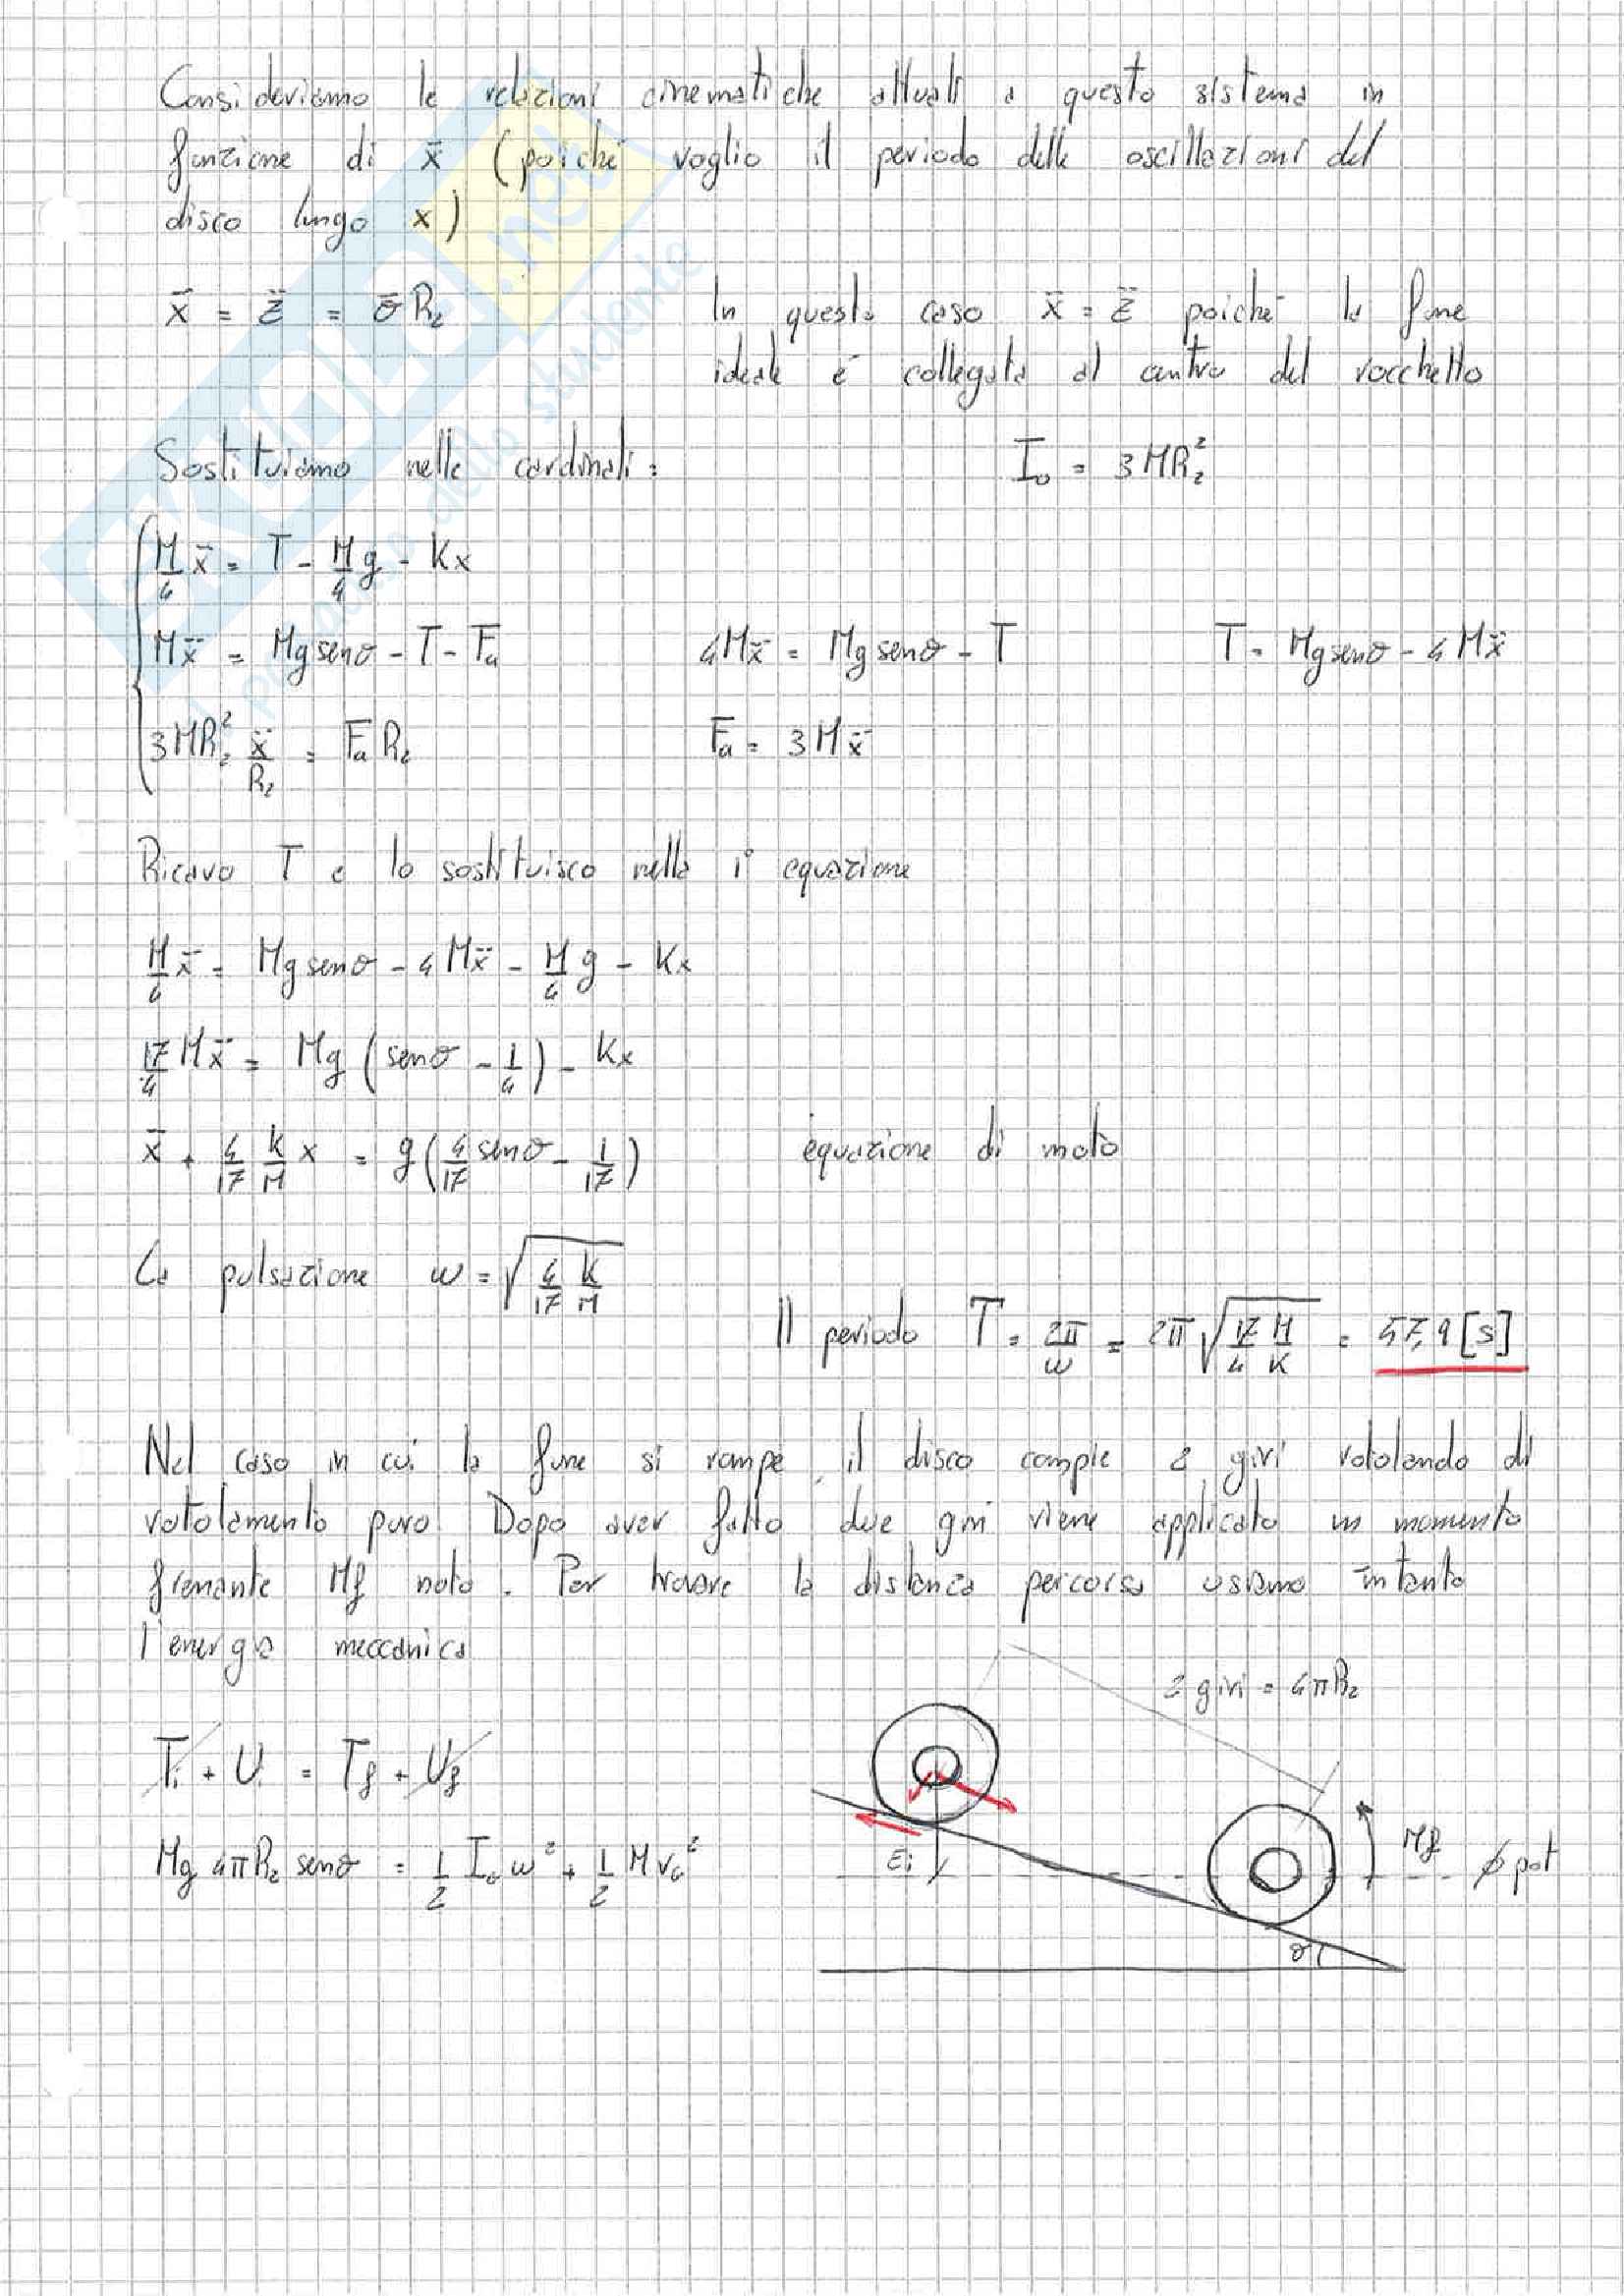 Consideriamo le relazioni cinematiche attuali a questo sistema in
funzione di ẍ (poiché voglio il periodo delle oscillazioni del
disco lungo x)
ẍ = z̈ = θ̈ R₂
In questo caso ẍ = z̈ poiché la fune
ideale è collegata al centro del rocchetto
Sostituiamo nelle cardinali:
I₀ = 3MR₂²
M/4 ẍ = T - M/4 g - Kx
Mẍ = Mg senθ - T - Fa
4Mẍ = Mg senθ - T
T = Mg senθ - 4Mẍ
3MR₂² ẍ/R₂ = Fa R₂
Fa = 3Mẍ
Ricavo T e lo sostituisco nella 1° equazione
M/4 ẍ = Mg senθ - 4Mẍ - M/4 g - Kx
17/4 Mẍ = Mg (senθ - 1/4) - Kx
ẍ + 4/17 K/M x = g (4/17 senθ - 1/17)
equazione di moto
La pulsazione ω = √(4/17 K/M)
Il periodo T = 2π/ω = 2π √(17/4 M/K) = 57,9 [s]
Nel caso in cui la fune si rompe, il disco compie 2 giri rotolando di
rotolamento puro. Dopo aver fatto due giri viene applicato un momento
frenante Mf noto. Per trovare la distanza percorsa usiamo intanto
l'energia meccanica
2 giri = 4πR₂
Ti + Ui = Tf + Uf
Mg 4πR₂ senθ = 1/2 I₀ ω² + 1/2 M v₀²
Ei
Mf
∅ pot
θ
SKUOLA.net
il paradiso dello studente